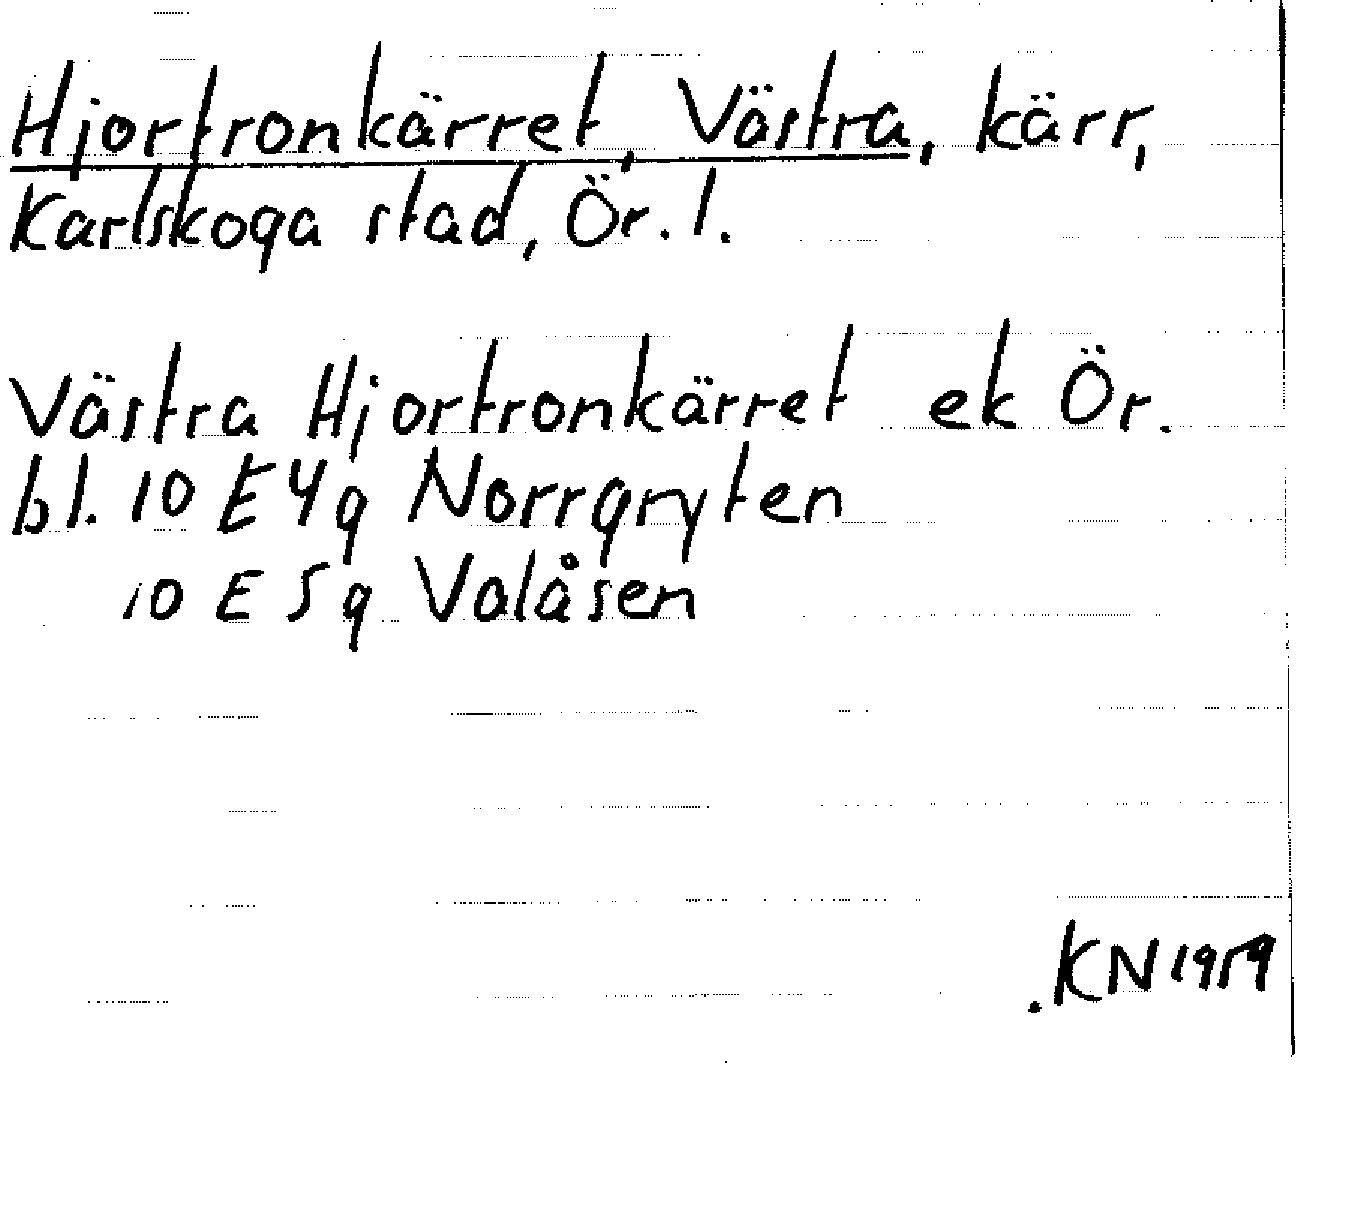 Hjortronkärret, Västra, kärr,
Karlskoga stad, Ör. l.
Västra Hjortronkärret ek Ör.
bl. 10 E 4g Norrgryten
10 E 5g Valåsen
KN 1959